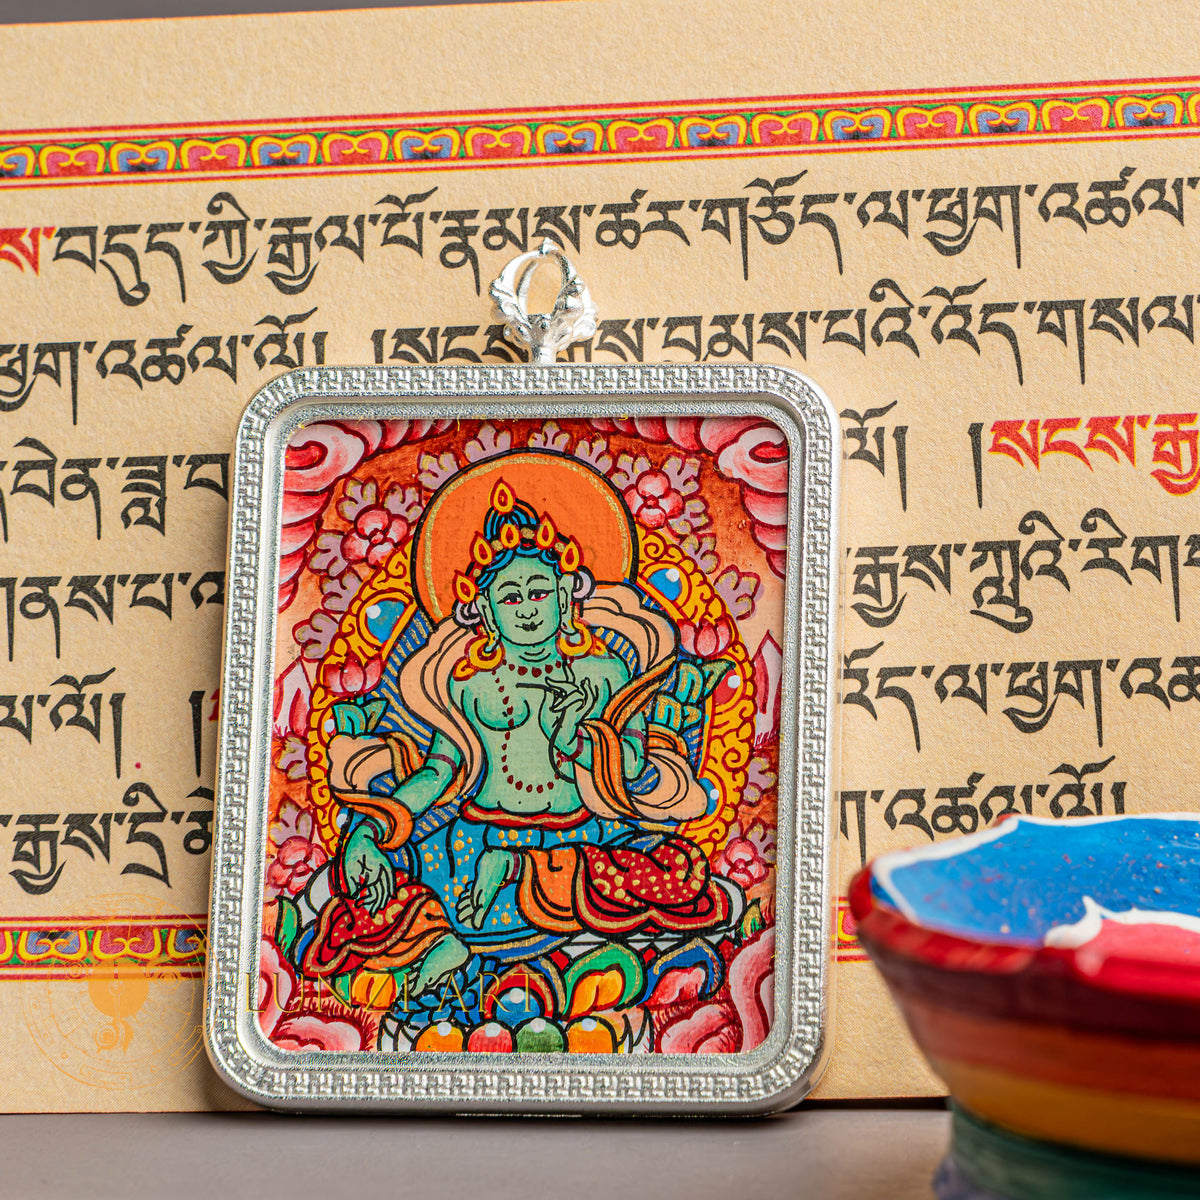 ས་བདུད་ཀྱི་རྒྱལ་པོ་རྣམས་ཚར་གཅོད་ལ་ཕྱག་འཚལ་
ཕྱག་འཚལ་ལོ། །སངས་རྒྱས་བྱམས་པའི་འོད་གསལ་
བེན་ཟླ་བ ལོ། །སངས་རྒྱ
གནས་པ་འ རྒྱས་ཀླུའི་རིགས་
ལ་ལོ། འོད་ལ་ཕྱག་འཚ
རྒྱས་དྲི་མེ ག་འཚལ་ལོ།
LUNZE ART